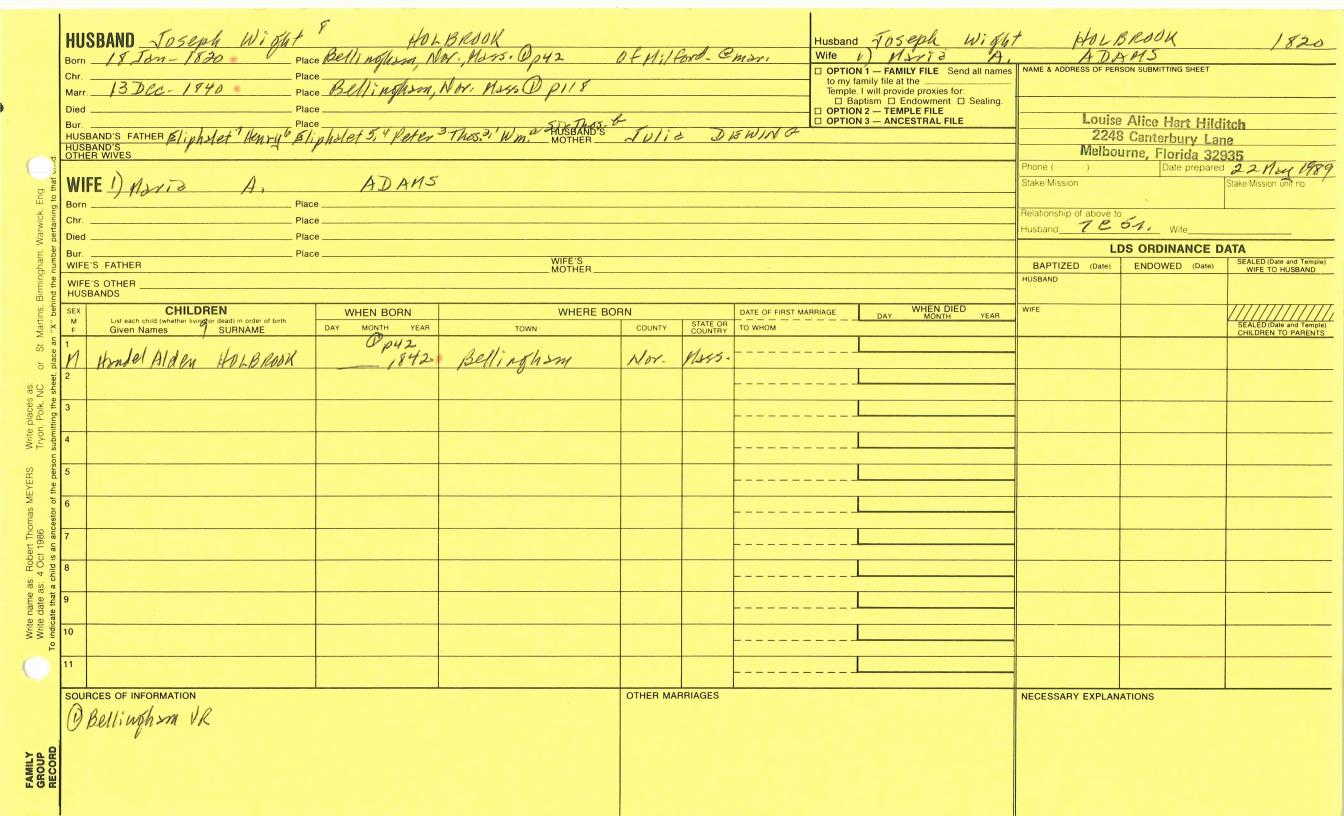 HUSBAND Joseph Wight 8 HOLBROOK
Born 18 Jan- 1820 Place Bellingham, Nor. Mass. ① p42 of Milford- @ mar.
Chr. Place
Marr. 13 Dec- 1840 Place Bellingham, Nor. Mass ① p118
Died Place
Bur. Place
HUSBAND'S FATHER Eliphalet 7 Henry 6 Eliphalet 5, 4 Peter 3 Thos. 2, 1 Wm. a Sr. Thos. b HUSBAND'S MOTHER Julia DEWING
HUSBAND'S OTHER WIVES
WIFE 1) Maria A. ADAMS
Born Place
Chr. Place
Died Place
Bur. Place
WIFE'S FATHER WIFE'S MOTHER
WIFE'S OTHER HUSBANDS
Husband Joseph Wight HOLBROOK 1820
Wife 1) Maria A. ADAMS
☐ OPTION 1 — FAMILY FILE Send all names
to my family file at the
Temple. I will provide proxies for:
☐ Baptism ☐ Endowment ☐ Sealing.
☐ OPTION 2 — TEMPLE FILE
☐ OPTION 3 — ANCESTRAL FILE
NAME & ADDRESS OF PERSON SUBMITTING SHEET
Louise Alice Hart Hilditch
2248 Canterbury Lane
Melbourne, Florida 32935
Phone ( ) Date prepared 22 May 1989
Stake/Mission Stake/Mission unit no.
Relationship of above to:
Husband 7 C 5r. Wife
LDS ORDINANCE DATA
BAPTIZED (Date) ENDOWED (Date) SEALED (Date and Temple) WIFE TO HUSBAND
HUSBAND
WIFE
SEALED (Date and Temple) CHILDREN TO PARENTS
SEX M F
CHILDREN
List each child (whether living or dead) in order of birth
Given Names 9 SURNAME
WHEN BORN
DAY MONTH YEAR
WHERE BORN
TOWN COUNTY STATE OR COUNTRY
DATE OF FIRST MARRIAGE
TO WHOM
WHEN DIED
DAY MONTH YEAR
① p42
1 M Handel Alden HOLBROOK 1842 Bellingham Nor. Mass.
2
3
4
5
6
7
8
9
10
11
SOURCES OF INFORMATION
① Bellingham VR
OTHER MARRIAGES
NECESSARY EXPLANATIONS
Write name as: Robert Thomas MEYERS Write places as: Tryon, Polk, NC or St. Martins, Birmingham, Warwick, Eng
Write date as: 4 Oct 1986
To indicate that a child is an ancestor of the person submitting the sheet, place an "X" behind the number pertaining to that child.
FAMILY
GROUP
RECORD